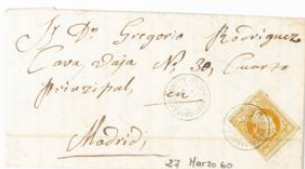 Sr. Dn. Gregorio Rodriguez
Cava Baja Nº 30, Cuarto
Prinzipal,
en
Madrid,
27 Marzo 60